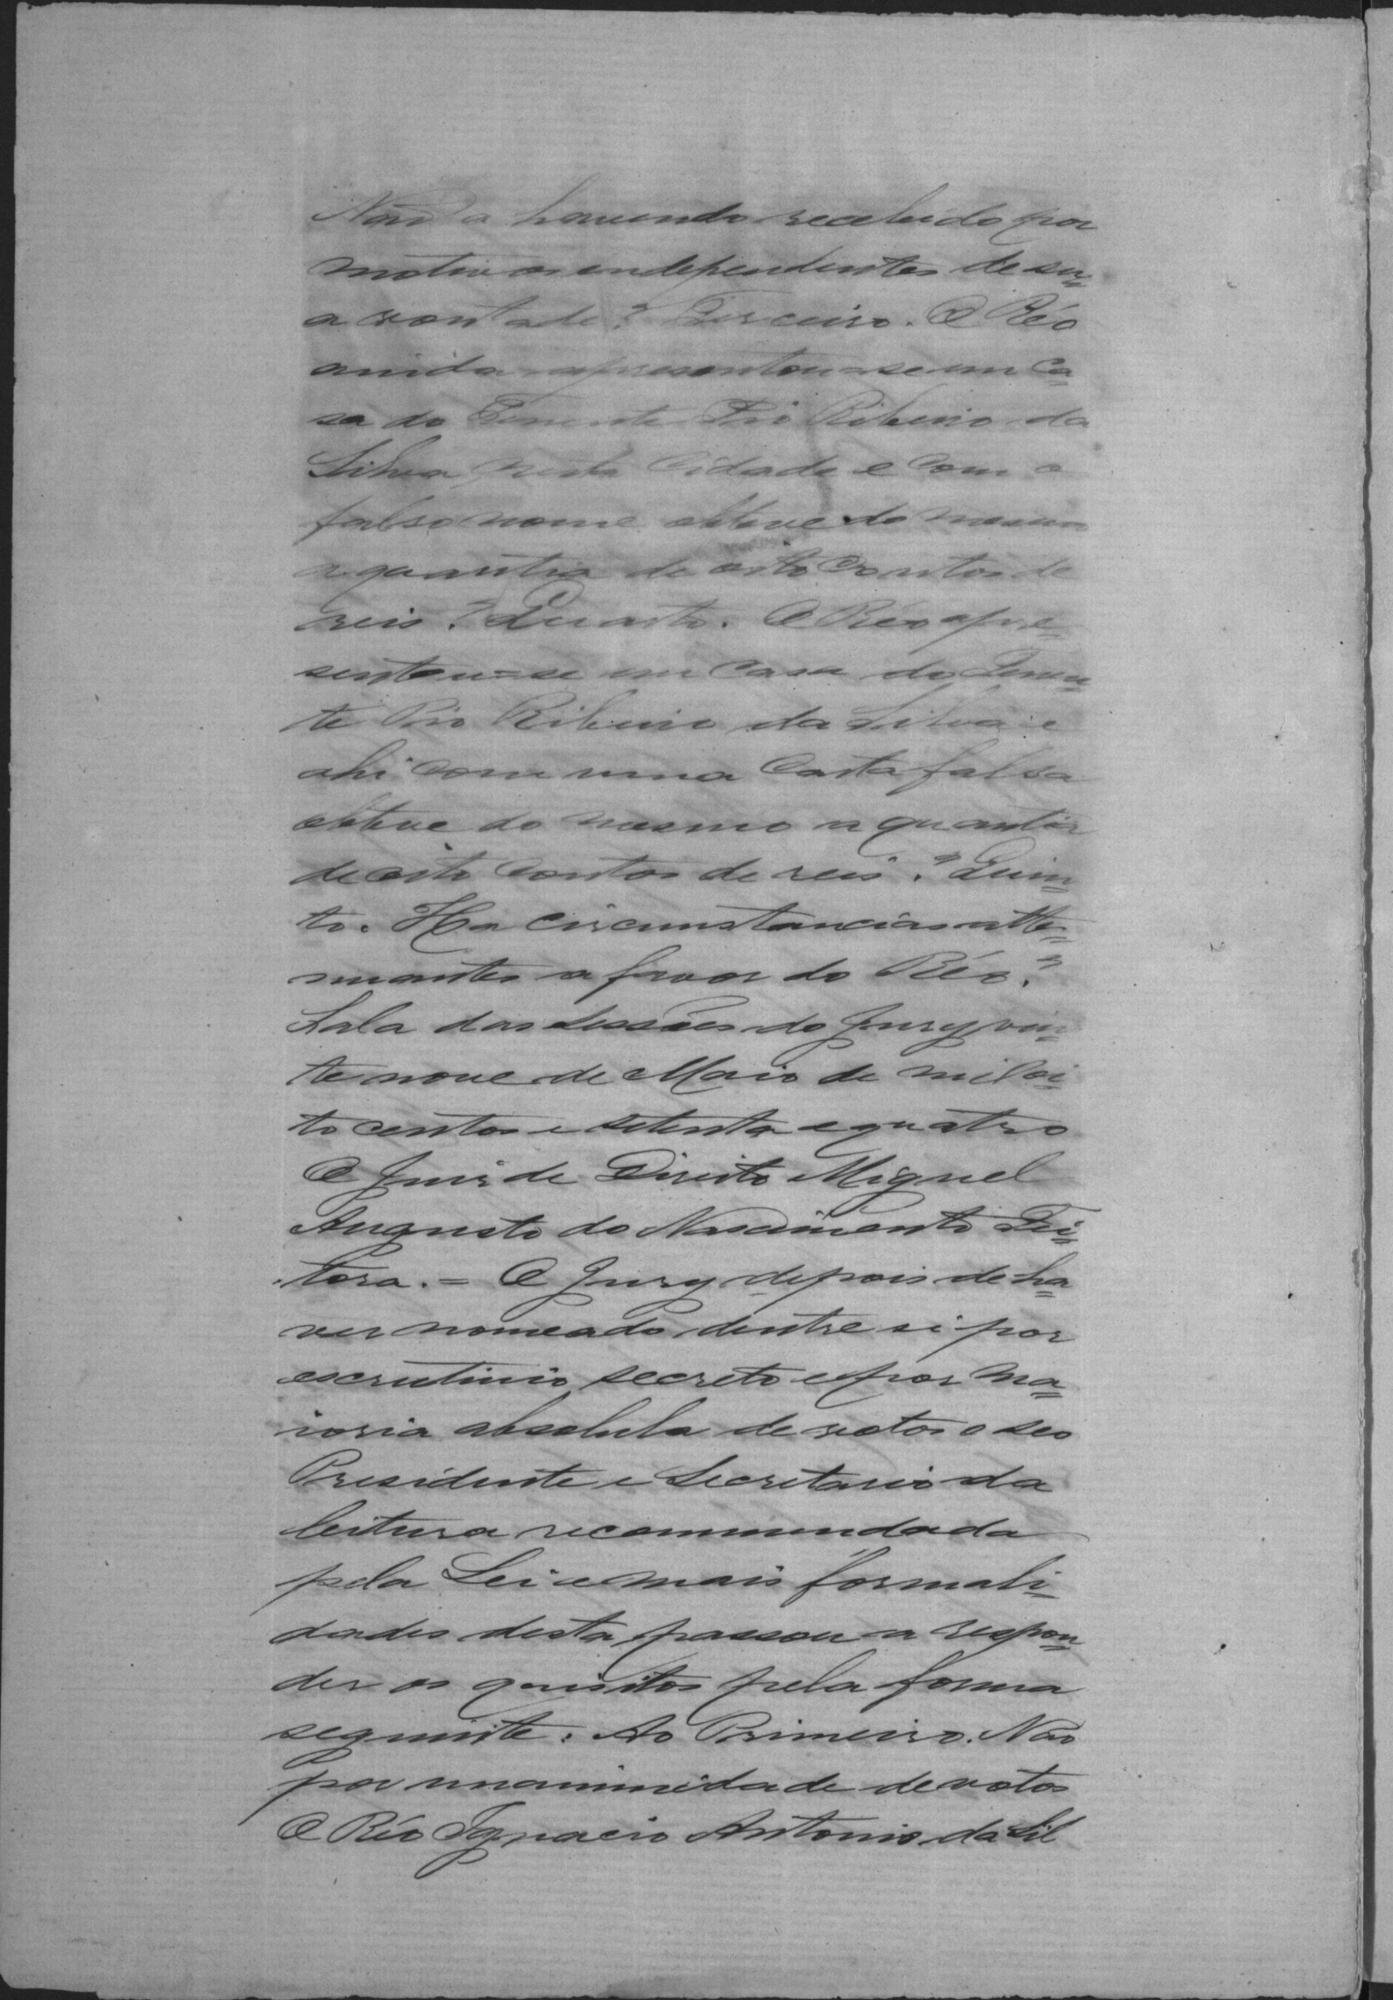 Não a havendo recebido por
motivos independentes de su=
a vontade? Terceiro. O Réo
ainda apresentou-se em ca=
sa do Tenente Pio Ribeiro da
Silva nesta Cidade e com o
falso nome obteve do mesmo
a quantia de oito contos de
reis? Quarto. O Réo apre=
sentou=se em casa do Tenen=
te Pio Ribeiro da Silva e
ahi com uma Carta falsa
obteve do mesmo a quantia
de oito contos de reis? Quin=
to. Ha circunstancias atte=
nuantes a favor do Réo?
Sala das Sessões do Jury vin=
te nove de Maio de mil oi=
to centos e setenta e quatro
O Juis de Direito Miguel
Augusto do Nascimento Fei=
tosa. = O Jury depois de ha=
ver nomeado dentre si por
escrutinio secreto e por ma=
ioria absoluta de votos o seo
Presidente e Secretario da
leitura recommendada
pela Lei e mais formali=
dades desta passou a respon=
der os quisitos pela forma
seguinte: Ao Primeiro. Não
por unanimidade de votos
O Réo Ignacio Antonio da Sil